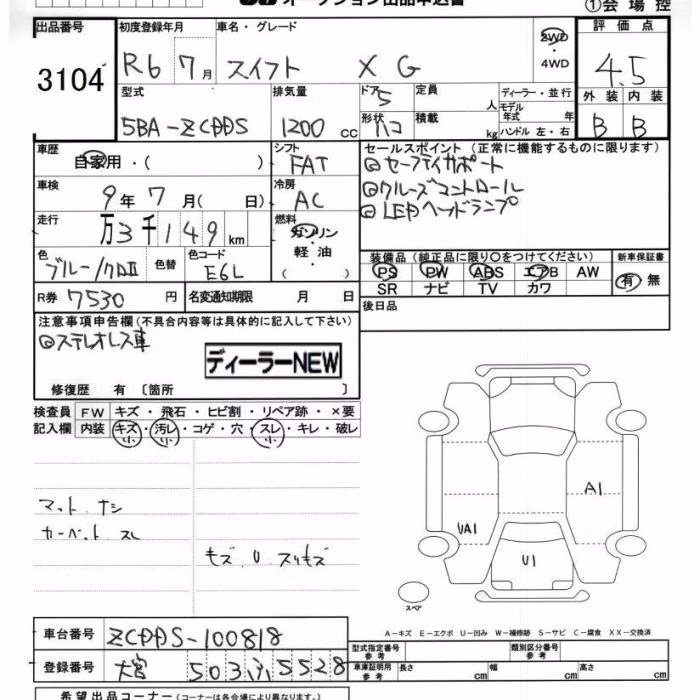 オークション出品申込書 ①会場控
出品番号 初度登録年月 車名・グレード 2WD・4WD 評価点
3104 R6 7月 スイフト XG 4.5
型式 排気量 ドア 5 定員 人 ディーラー・並行 外装 内装
5BA-ZCDDS 1200cc 形状 ハコ 積載 kg モデル年式 年 ハンドル 左・右 B B
車歴 自家用・( ) シフト FAT セールスポイント (正常に機能するものに限ります)
◎セーフティサポート
車検 9年7月( 日) 冷房 AC ◎クルーズコントロール
走行 万3千149km 燃料 ガソリン・軽油・( ) ◎LEDヘッドランプ
色 ブルー/クロII 色替 色コード E6L 装備品 (純正品に限り○をつけてください) 新車保証書
PS PW ABS エアB AW 有 無
R券 7530円 名変通知期限 月 日 SR ナビ TV カワ
後日品
注意事項申告欄 (不具合内容等は具体的に記入して下さい)
◎ステレオレス車
ディーラーNEW
修復歴 有 〔箇所 〕
検査員 FW キズ・飛石・ヒビ割・リペア跡・×要
記入欄 内装 キズ・汚レ・コゲ・穴・スレ・キレ・破レ
小 小 小
マット ナシ A1
カーペット スレ UA1
キズ U スリキズ U1
スペア
A-キズ E-エクボ U-凹み W-補修跡 S-サビ C-腐食 XX-交換済
車台番号 ZCDDS-100818 型式指定番号 参考 類別区分番号 参考
登録番号 大宮 503 ふ 5528 車庫証明用 参考 長さ cm 幅 cm 高さ cm
希望出品コーナー (コーナーは各会場により異なります。)